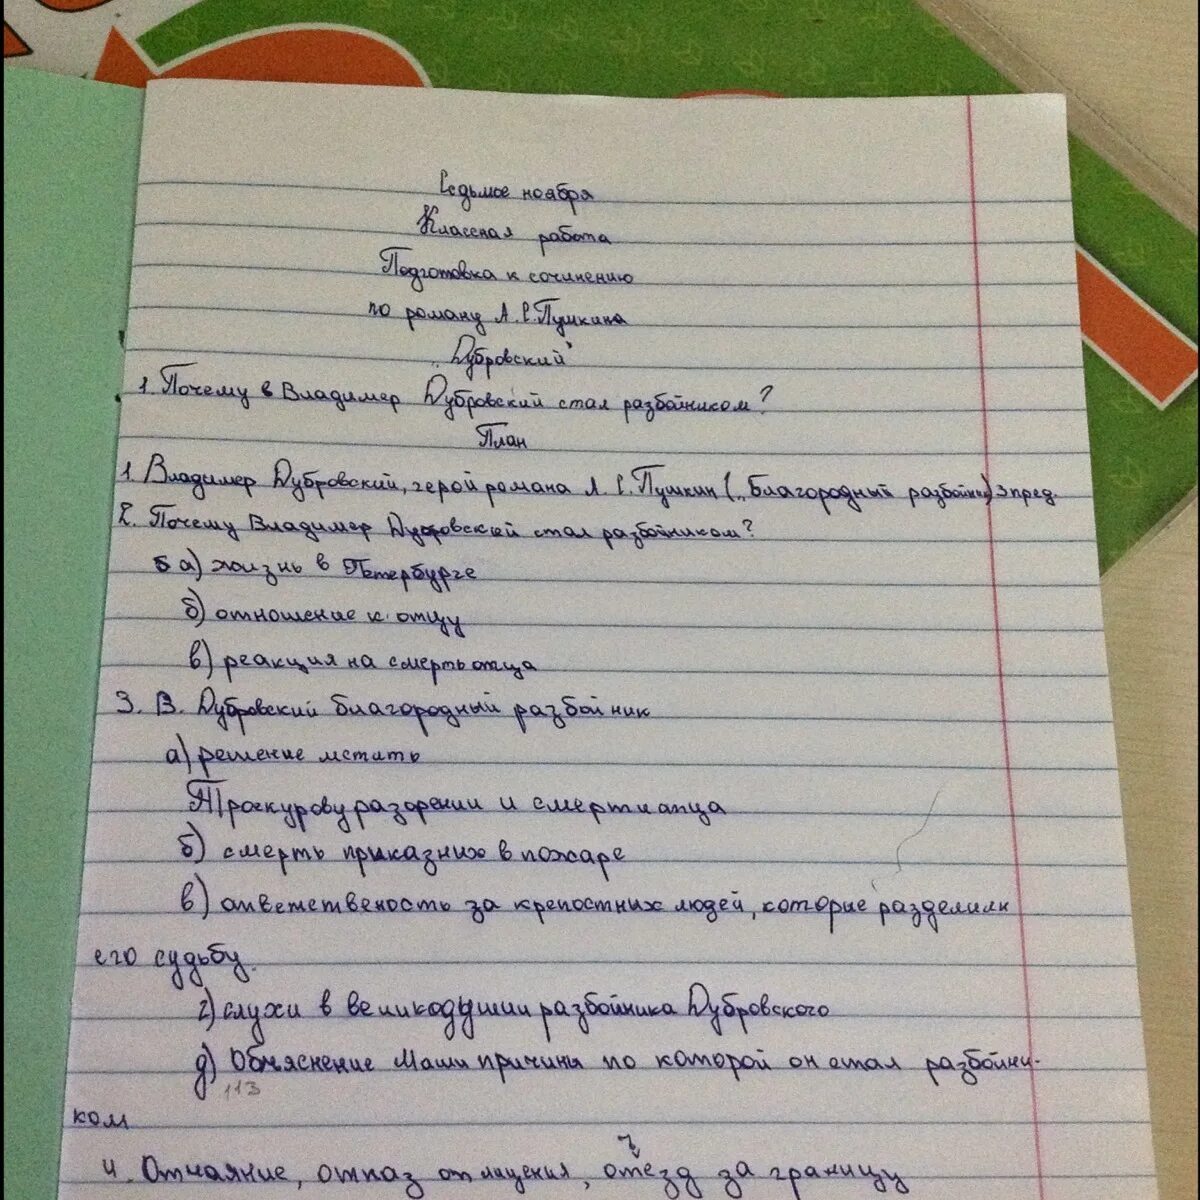 Седьмое ноября
Классная работа
Подготовка к сочинению
по роману А.С.Пушкина
„Дубровский"
1. Почему в Владимер Дубровский стал разбойником?
План
1. Владимер Дубровский, герой романа А.С.Пушкин („Благородный разбойник) 3 пред.
2. Почему Владимер Дубровский стал разбойником?
а) жизнь в Петербурге
б) отношение к отцу
в) реакция на смерть отца
3. В. Дубровский благородный разбойник
а) решение мстить
Троекурову разорении и смерти отца
б) смерть приказних в пожаре
в) ответственость за крепостных людей, которые разделили
его судьбу.
г) слухи в великодушии разбойника Дубровского
д) Объяснение Маши причины по которой он стал разбойни-
113
ком
4. Отчаяние, отказ от мщения, отезд за границу